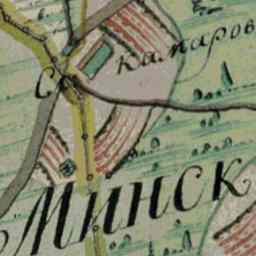 С. Камаров
Минск